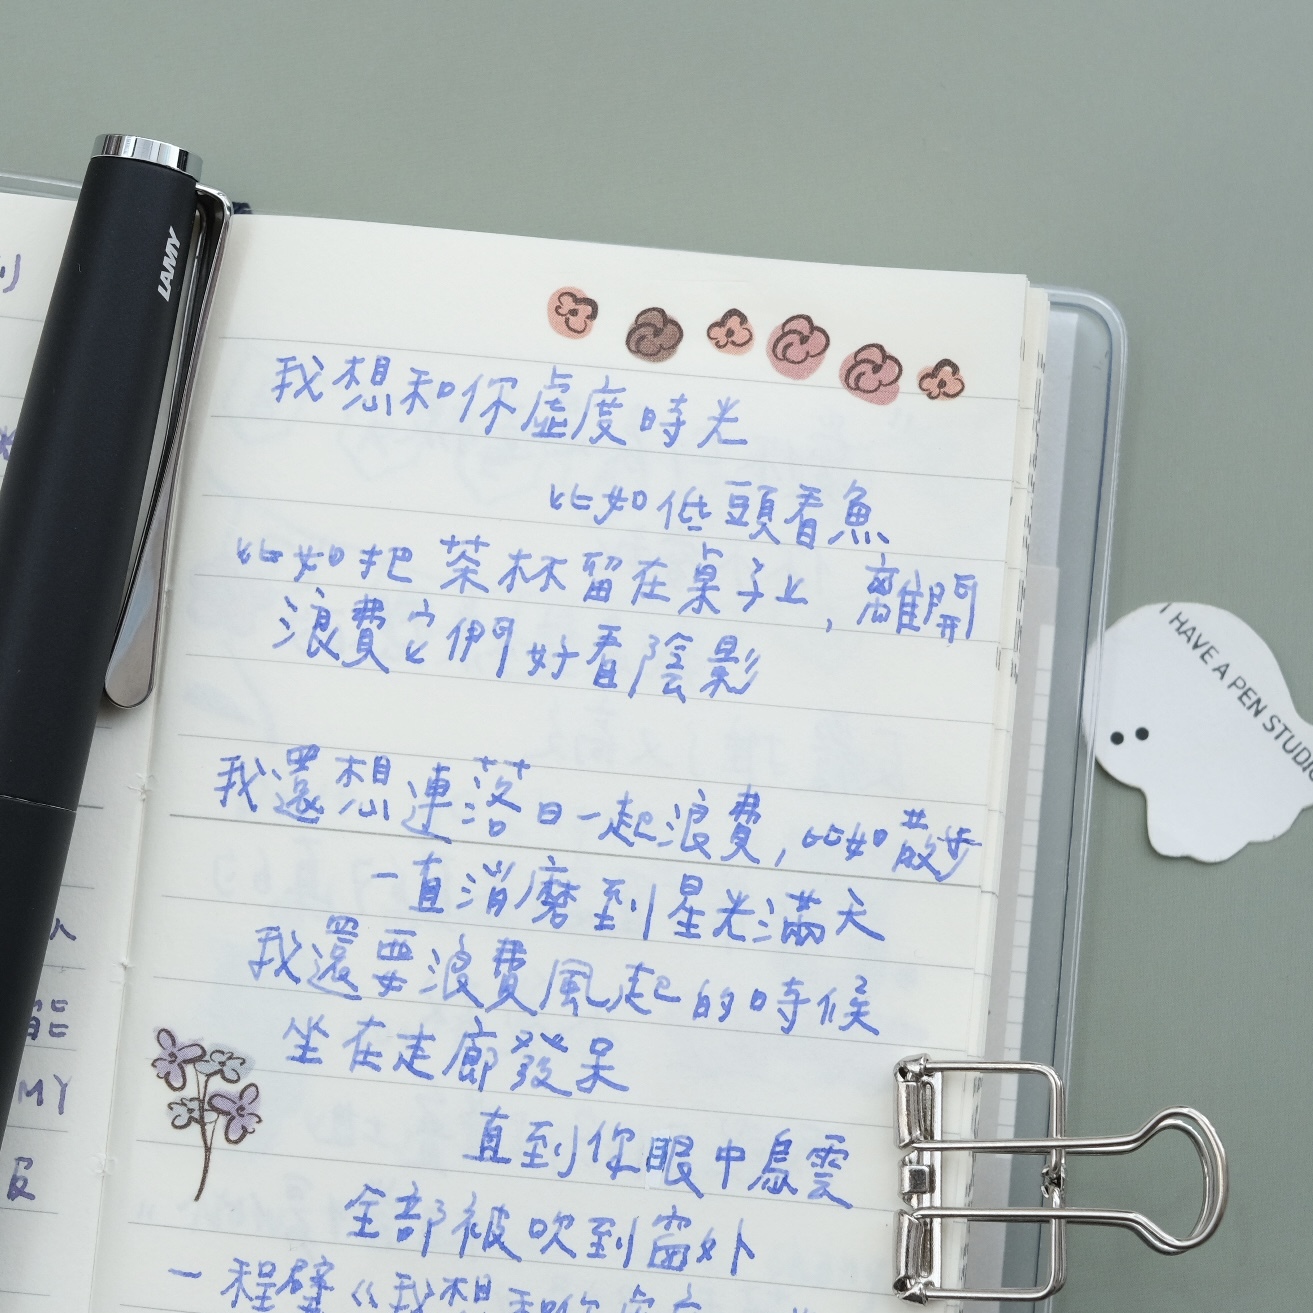 LAMY
我想和你虛度時光
比如低頭看魚
比如把茶杯留在桌子上,離開
浪費它們好看陰影
我還想連落日一起浪費,比如散步
一直消磨到星光滿天
我還要浪費風起的時候
坐在走廊發呆
直到你眼中烏雲
全部被吹到窗外
一程璧《我想和你虛度
I HAVE A PEN STUDIO
能
MY
及